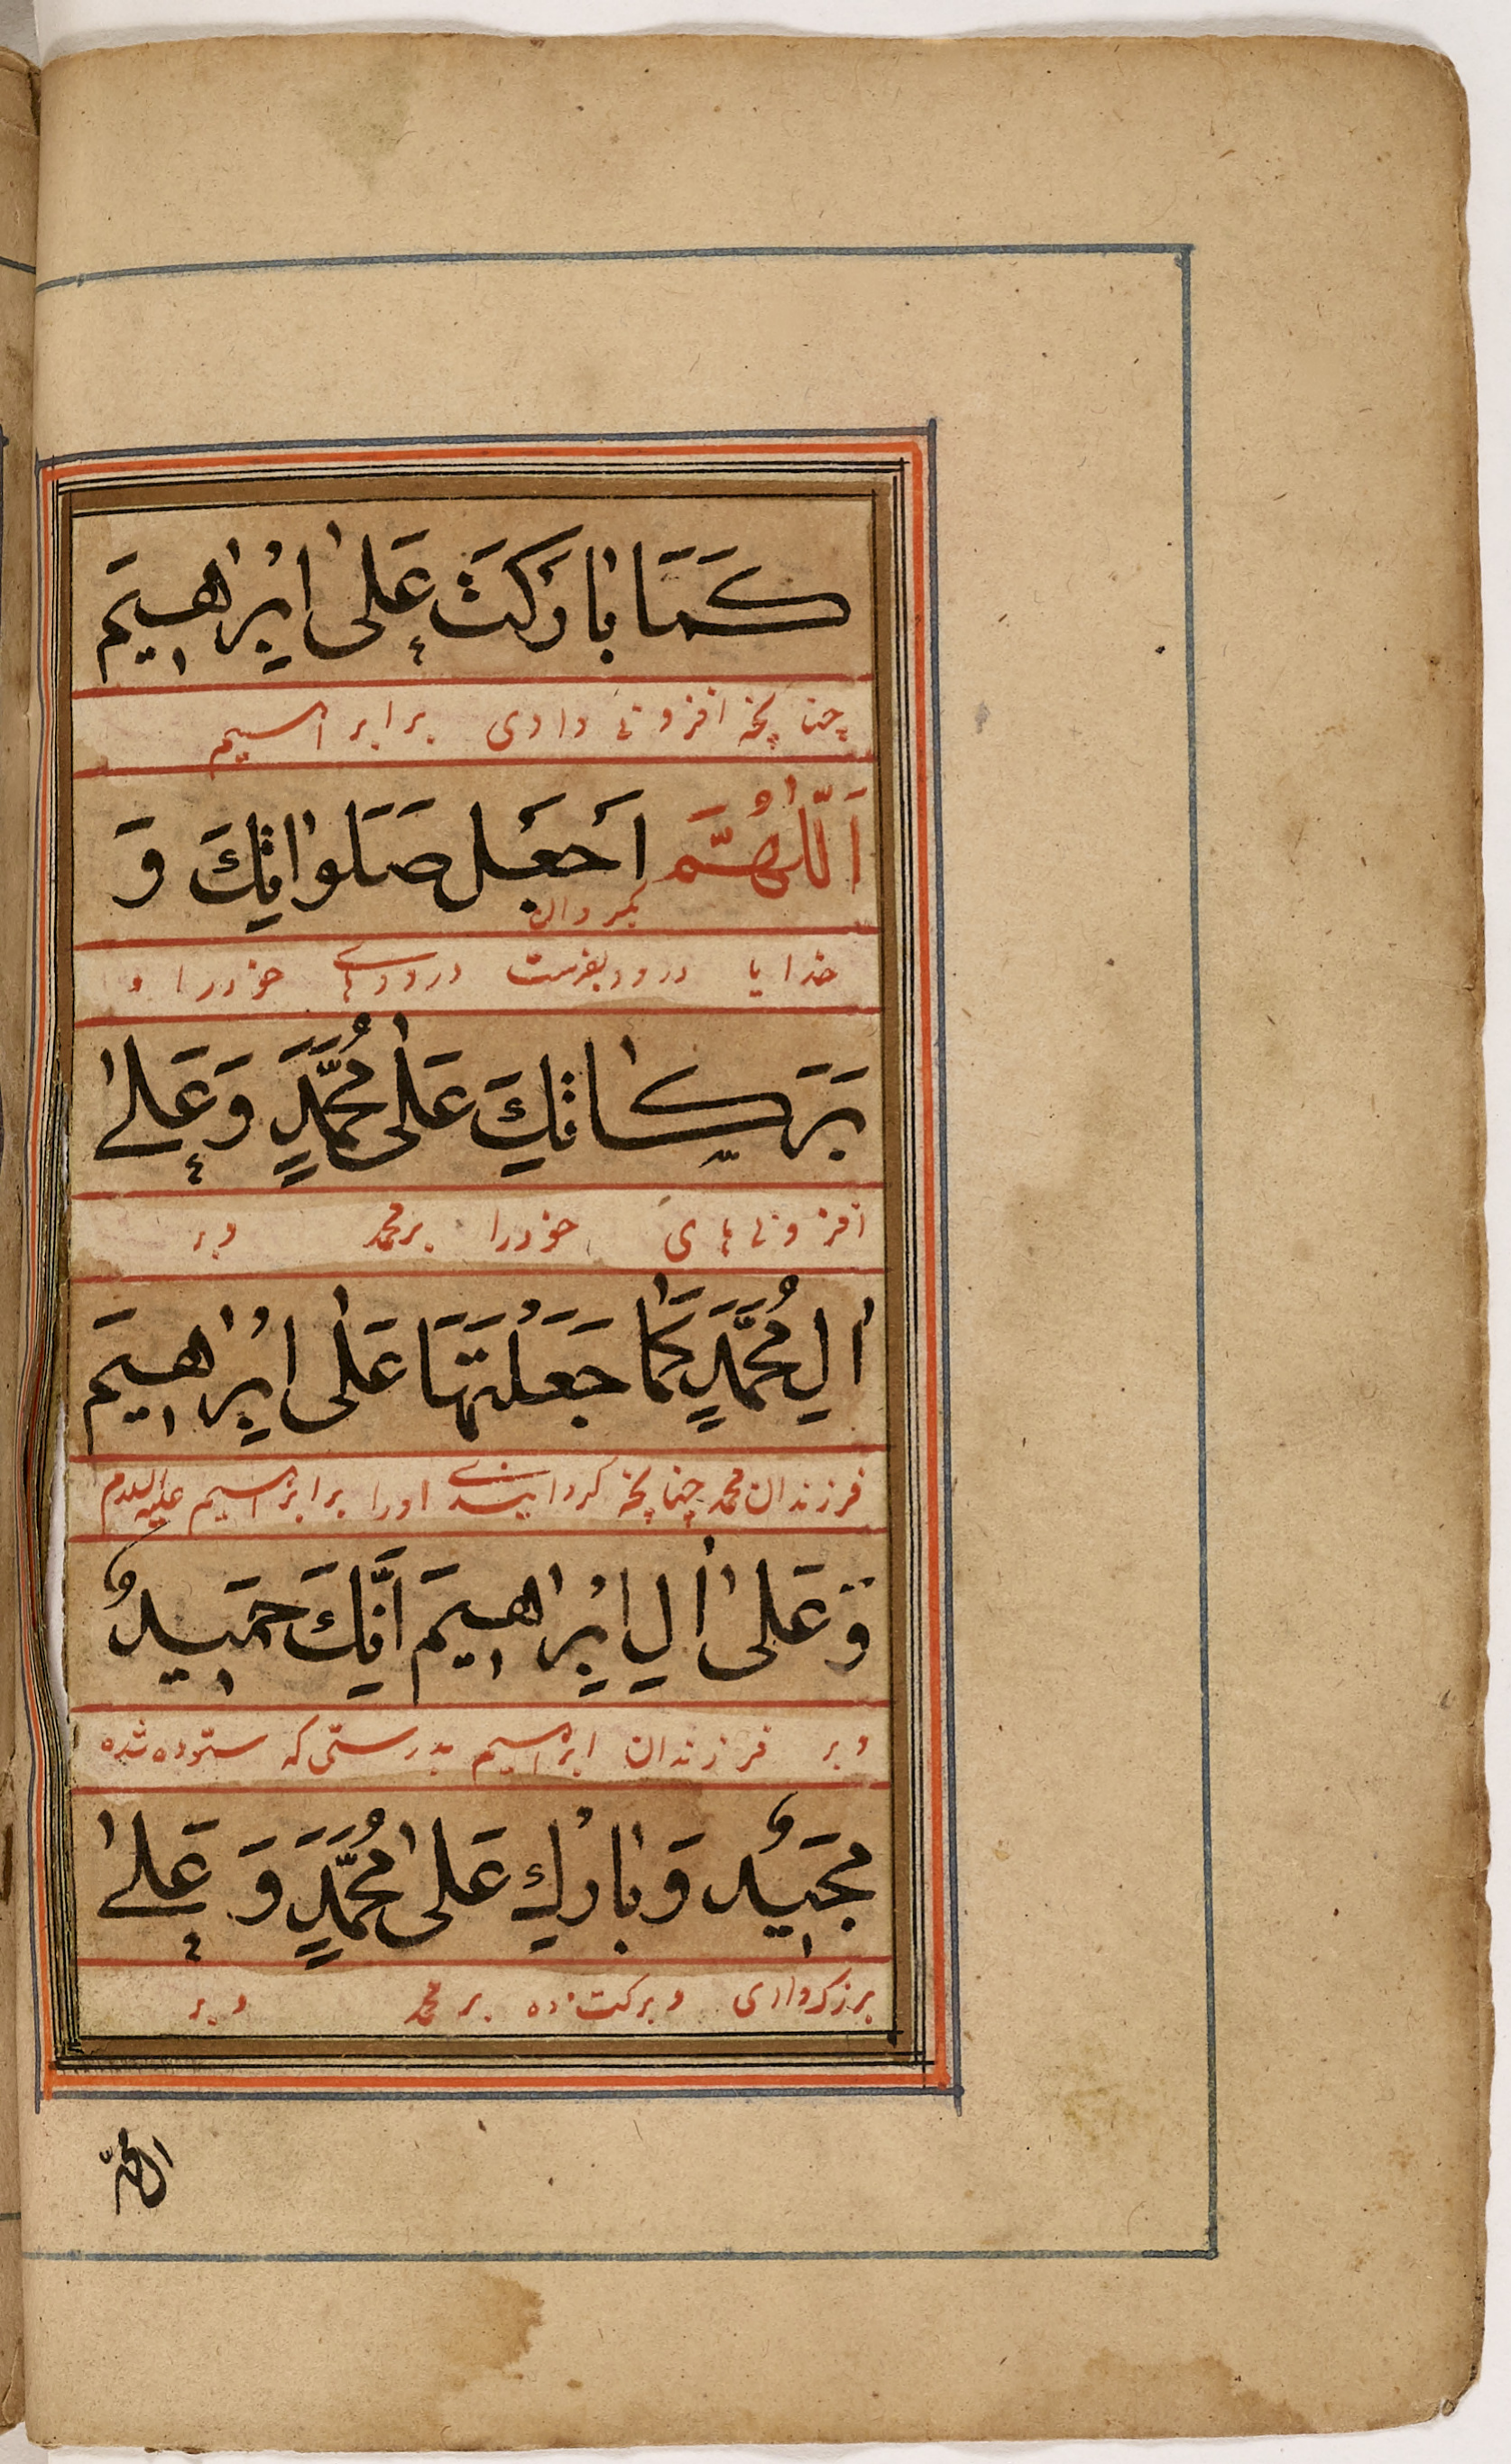 كَمَا بَارَكْتَ عَلٰى اِبْرٰاهِيمَ
چنانچه افزونی دادی بر ابراهیم
اَللّٰهُمَّ اجْعَل صَلَوٰاتِكَ وَ
بگردان
خدایا درود بفرست درودهای خود را و
بَرَكٰاتِكَ عَلٰى مُحَمَّدٍ وَعَلٰى
افزونی های خود را بر محمد و بر
اٰلِ مُحَمَّدٍ كَمٰا جَعَلْتَهَا عَلٰى اِبْرٰاهِيمَ
فرزندان محمد چنانچه گردانیدی او را بر ابراهیم علیه السلام
وَعَلٰى اٰلِ اِبْرٰاهِيمَ اِنَّكَ حَمِيدٌ
و بر فرزندان ابراهیم بدرستی که ستوده شده
مَجِيدٌ وَبٰارِكْ عَلٰى مُحَمَّدٍ وَ عَلٰى
بزرگواری و برکت ده بر محمد و بر